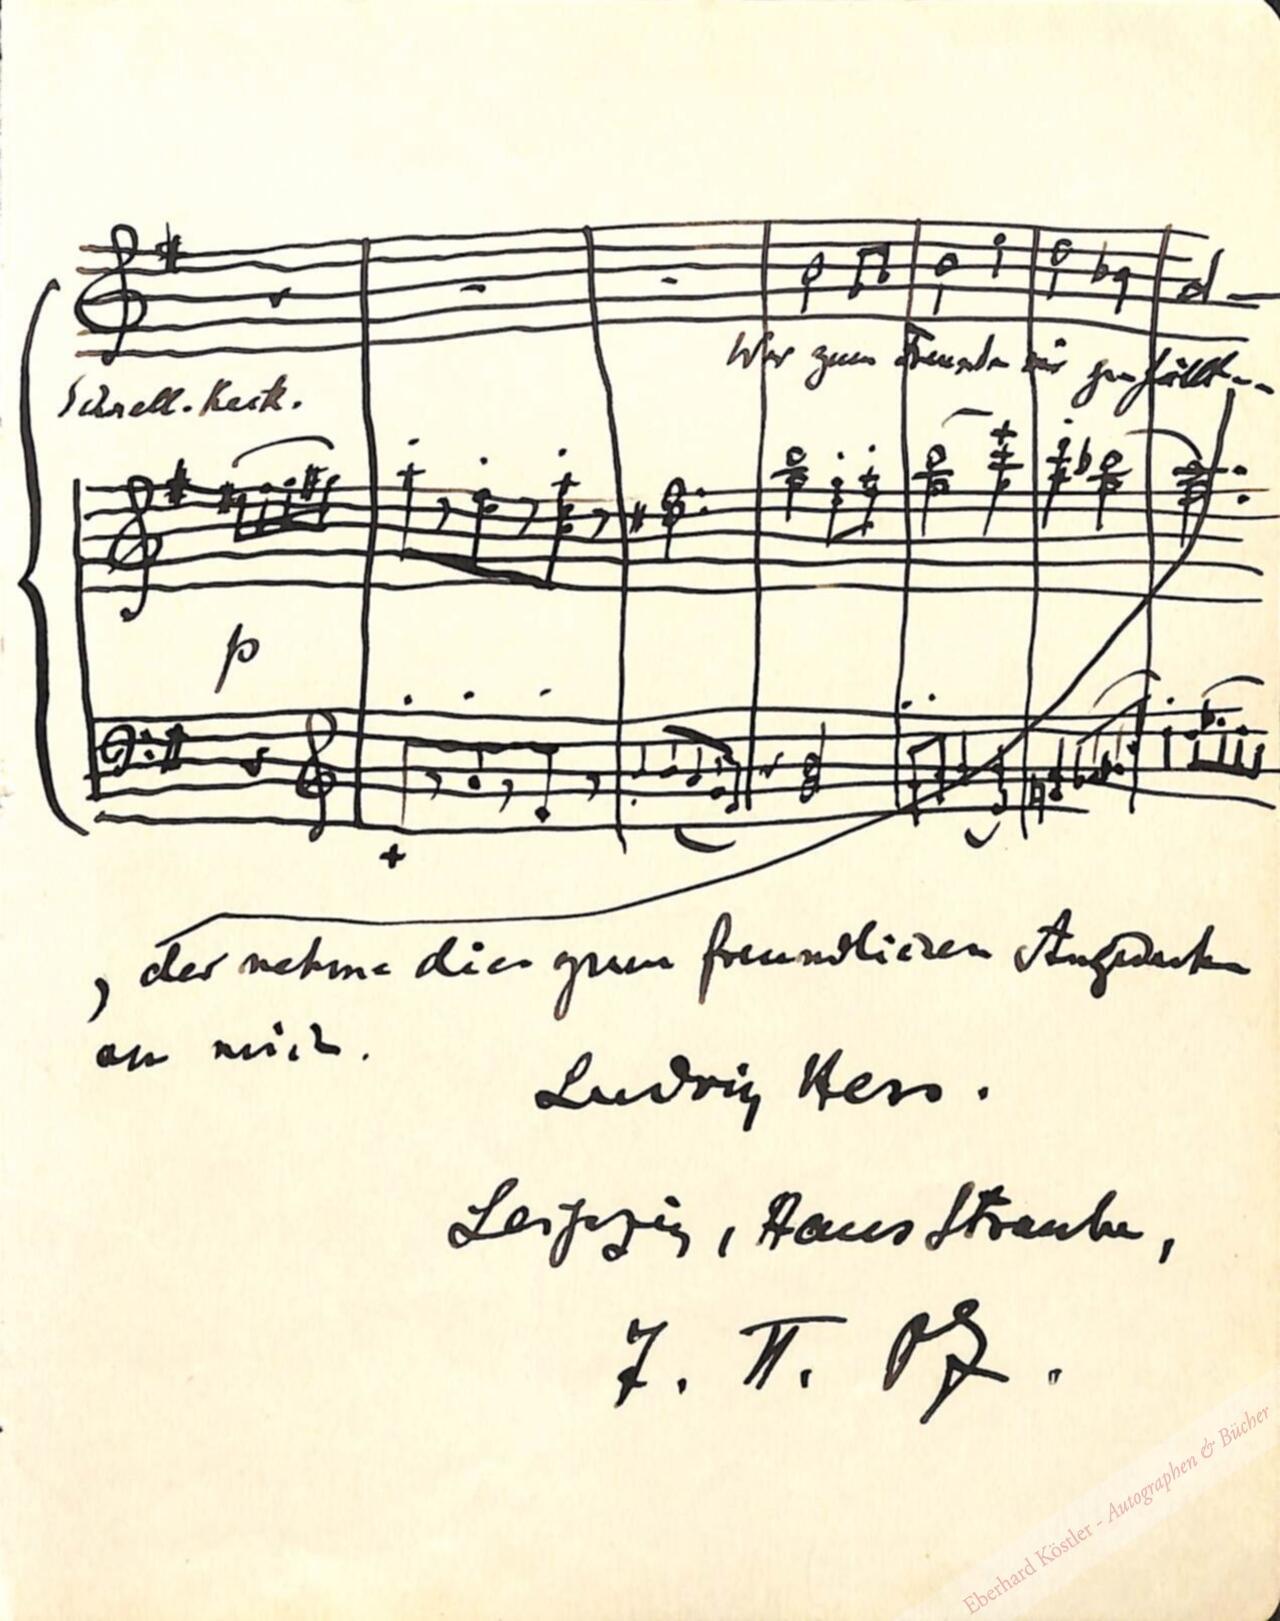 Wer zum Freunde mir gefällt--
Schnell. Keck.
p
, der nehme dies zum freundlichen Angedenken
an mich.
Ludwig Hess.
Leipzig, Haus Straube,
7. II. 07.
Eberhard Köstler - Autographen & Bücher